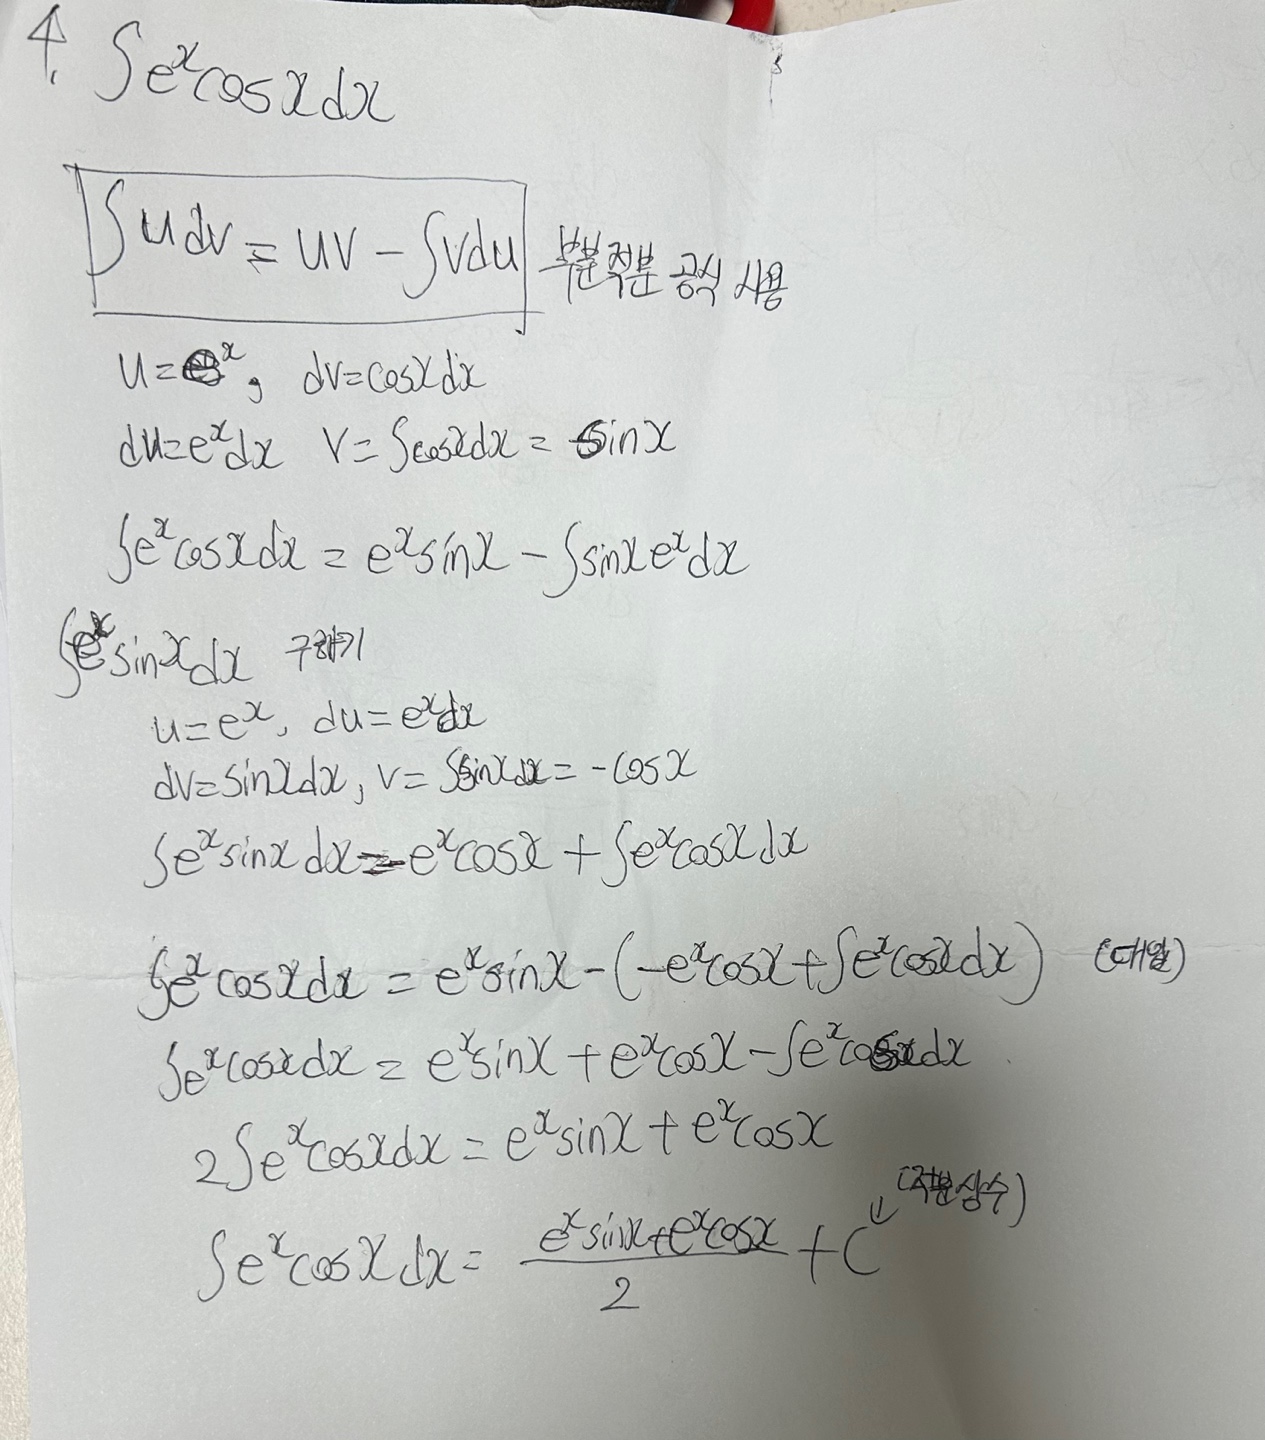 4. ∫eˣcosxdx
∫udv = uv - ∫vdu 부분적분 공식 사용
u=eˣ, dv=cosxdx
du=eˣdx v=∫cosxdx = sinx
∫eˣcosxdx = eˣsinx - ∫sinxeˣdx
∫eˣsinxdx 구하기
u=eˣ, du=eˣdx
dv=sinxdx, v=∫sinxdx=-cosx
∫eˣsinxdx=-eˣcosx+∫eˣcosxdx
∫eˣcosxdx = eˣsinx-(-eˣcosx+∫eˣcosxdx) (대입)
∫eˣcosxdx = eˣsinx+eˣcosx-∫eˣcosxdx
2∫eˣcosxdx = eˣsinx+eˣcosx
(적분상수)
∫eˣcosxdx= (eˣsinx+eˣcosx)/2 +C